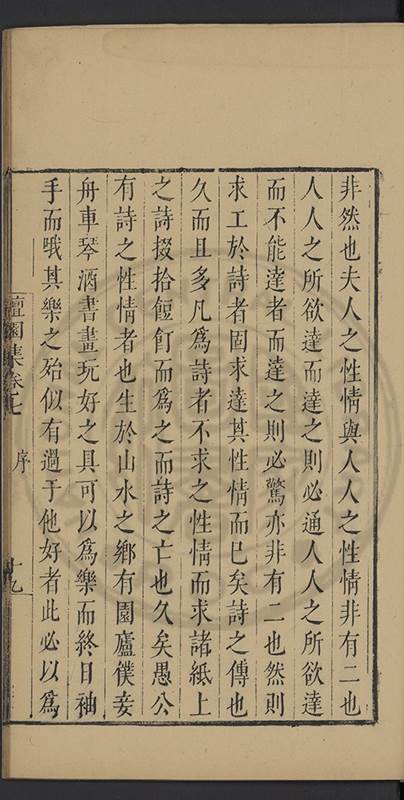 非然也夫人之性情與人人之性情非有二也
人人之所欲達而達之則必通人人之所欲達
而不能達者而達之則必驚亦非有二也然則
求工於詩者固求達其性情而已矣詩之傳也
久而且多凡爲詩者不求之性情而求諸紙上
之詩掇拾餖飣而爲之而詩之亡也久矣愚公
有詩之性情者也生於山水之鄉有園廬僕妾
舟車琴酒書畫玩好之具可以爲樂而終日袖
手而哦其樂之殆似有過于他好者此必以爲
檀園集卷之七 序